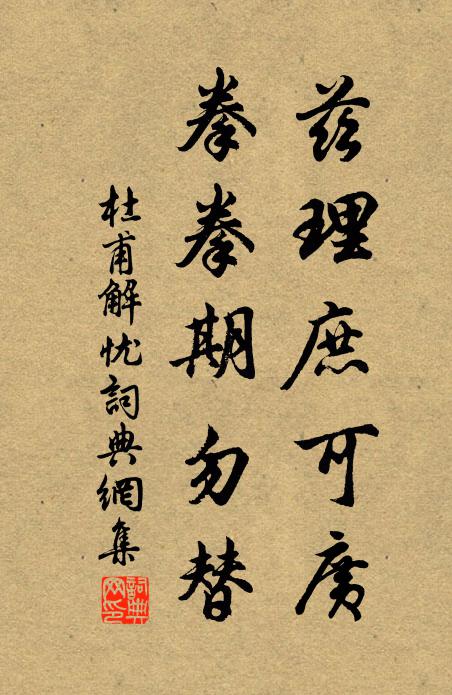 茲理庶可廣
拳拳期勿替
杜甫解忧詞典網集
詞典網印